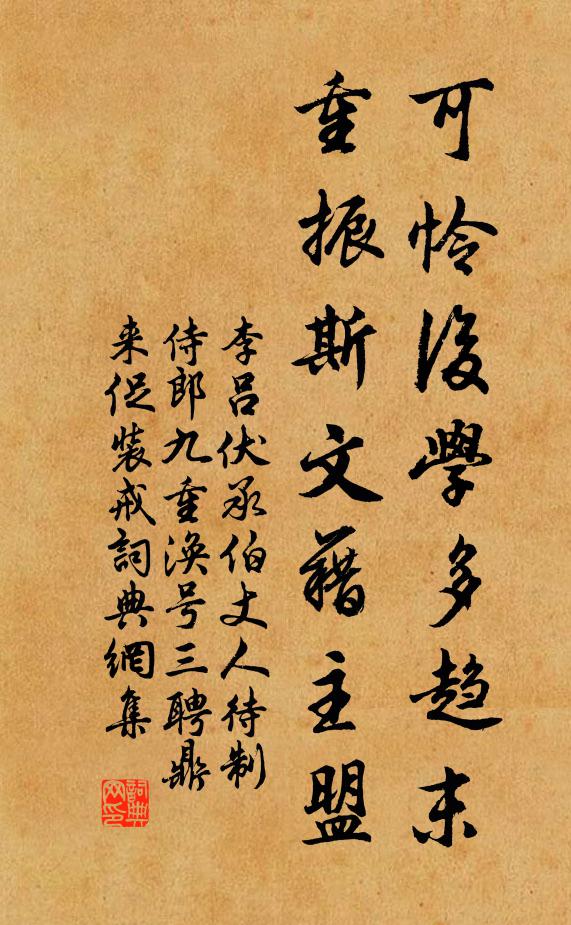 可怜後學多趋末
重振斯文藉主盟
李吕伏承伯丈人待制
侍郎九重渙号三聘鼎
来促裝戒詞典網集
詞典
网印